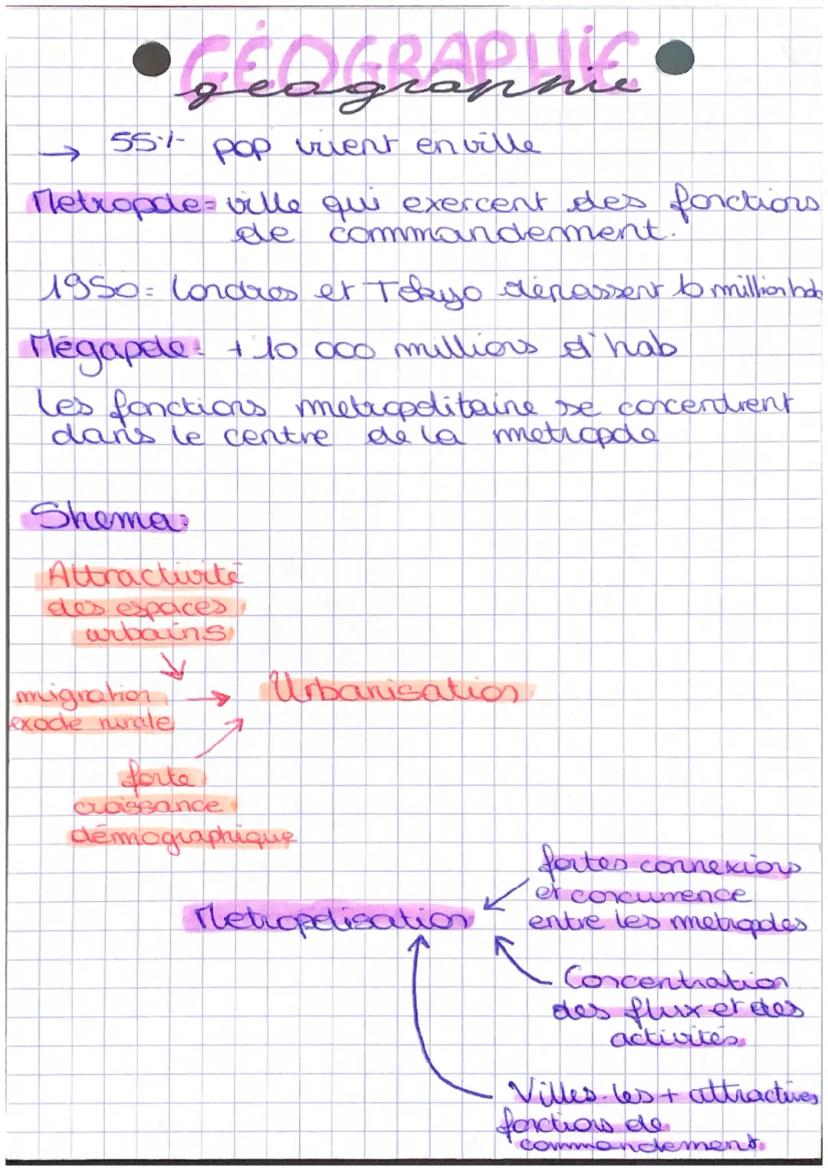 GÉOGRAPHIE
géographie
→ 55% pop vivent en ville
Metropole = ville qui exercent des fonctions
de commandement.
1950 = Londres et Tokyo dépassent 10 million hab
Mégapole : + 10 000 millions d'hab
Les fonctions metropolitaine se concentrent
dans le centre de la metropole
Shema :
Attractivité
des espaces
urbains
migration → Urbanisation
exode rurale
forte
croissance
démographique
fortes connexions
et concurrence
entre les metropoles
Metropolisation
Concentration
des flux et des
activités
Villes les + attractives
fonctions de
commandement